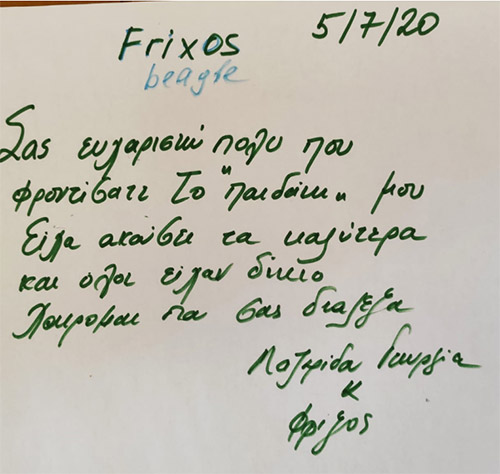 Frixos
5/7/20
beagle
Σας ευχαριστώ πολυ που
φροντίσατε το "παιδάκι" μου
Είχα ακούσει τα καλύτερα
και όλοι είχαν δίκιο
Χαιρομαι που σας διαλεξα
Γεωργία
κ
Φρίξος